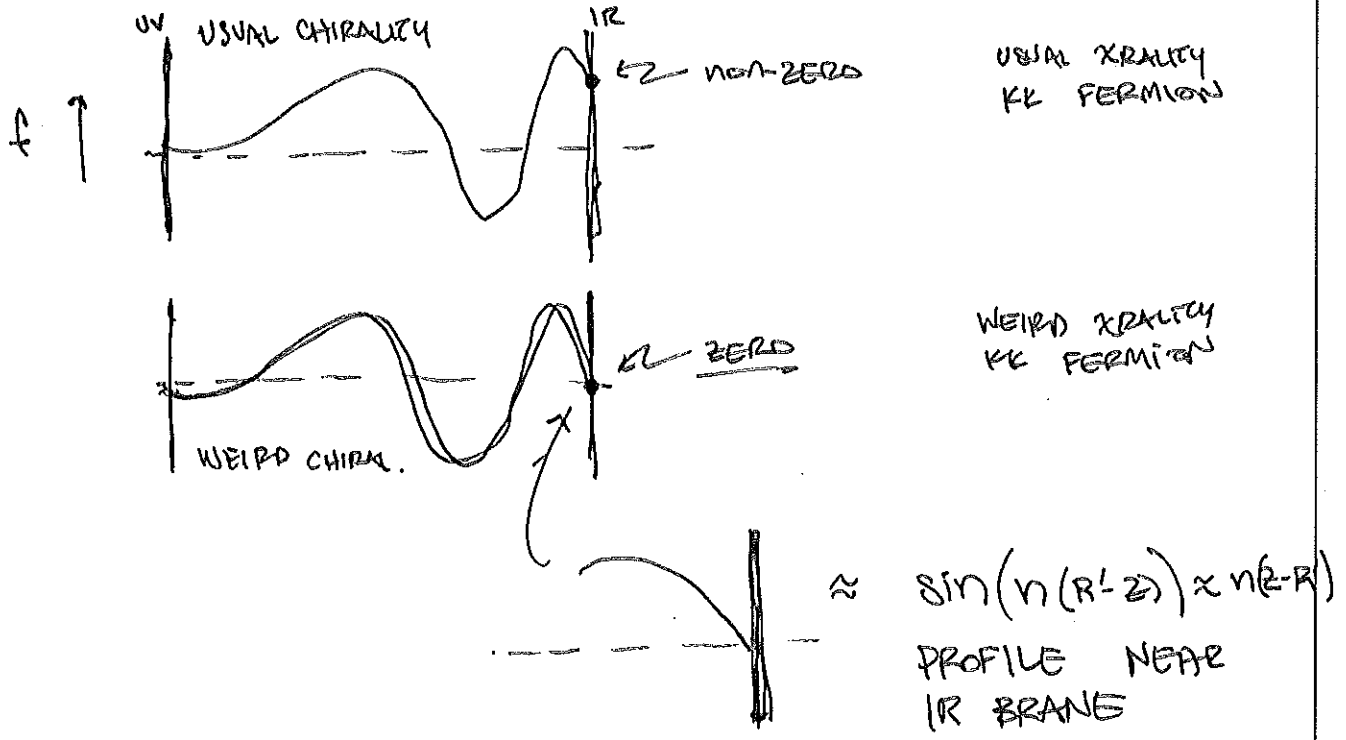 UV USUAL CHIRALITY IR
f
non-ZERO
USUAL XRALITY
KK FERMION
ZERO
WEIRD XRALITY
KK FERMION
WEIRD CHIRAL.
≈ sin(n(R'-z)) ∝ n(z-R')
PROFILE NEAR
IR BRANE